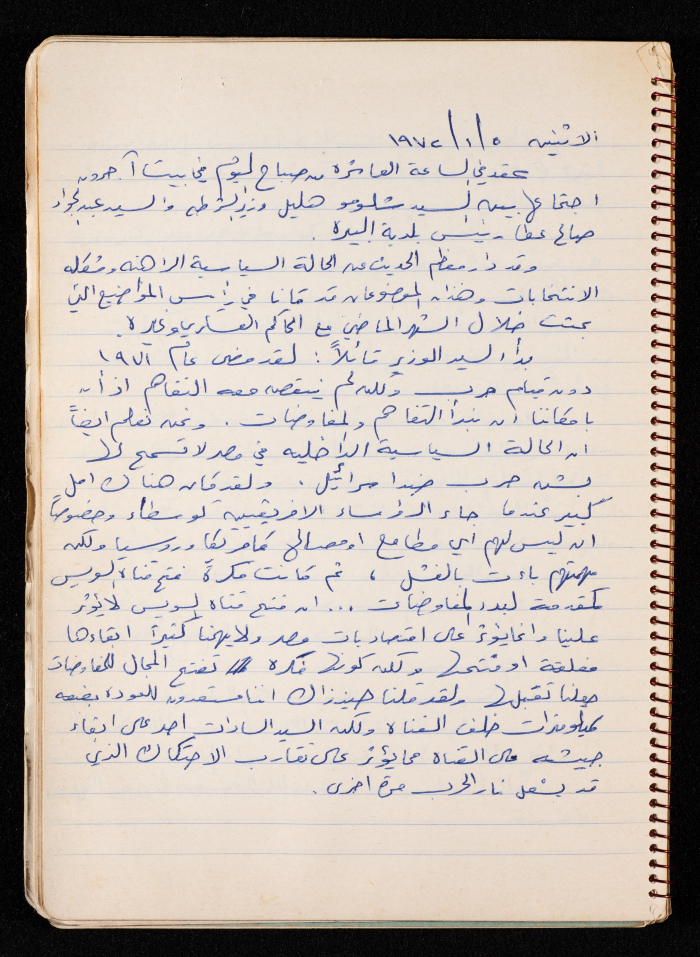 الاثنين ٥/١/١٩٧٢
عقد في الساعة العاشرة من صباح اليوم في بيت آجرون
اجتماعا بين السيد شلومو هليل وزير الشرطه والسيد عبد الجواد
صالح عطا رئيس بلدية البيرة .
وقد دار معظم الحديث عن الحالة السياسية الراهنه ومشكله
الانتخابات وهذان الموضوعان قد كانا في رأس المواضيع التي
بحثت خلال الشهر الماضي مع الحاكم العسكري وغيره .
بدأ السيد الوزير قائلاً : لقد مضى عام ١٩٧١
دون قيام حرب ولكن لم ينقص معه التفاهم اذ أن
بامكاننا ان نبدأ التفاهم والمفاوضات . ونحن نعلم ايضاً
ان الحالة السياسية الداخليه في مصر لا تسمح لها
بشن حرب ضد اسرائيل . ولقد كان هناك امل
كبير عندما جاء الرؤساء الافريقيين كوسطاء وخصوصاً
ان ليس لهم اي مطامع او مصالح كامريكا وروسيا ولكن
مهمتهم باءت بالفشل ، ثم كانت فكرة فتح قناة السويس
كمقدمة لبدء المفاوضات ... ان فتح قناة السويس لا يؤثر
علينا وانما يؤثر على اقتصاديات مصر ولا يهمنا كثيراً ابقاءها
مغلقة او فتحها ولكن كونها فكرة تفتح المجال للمفاوضات
جعلنا نقبلها ولقد قلنا حينذاك اننا مستعدون للعودة بضعه
كيلومترات خلف القناه ولكن السيد السادات اصر على ابقاء
جيشه على القناة مما يؤثر على تقارب الاحتكاك الذي
قد يشعل نار الحرب مرة اخرى .